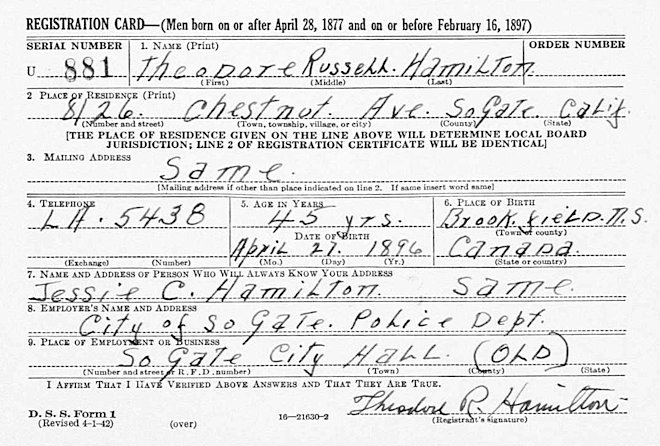 REGISTRATION CARD—(Men born on or after April 28, 1877 and on or before February 16, 1897)
SERIAL NUMBER 1. NAME (Print) ORDER NUMBER
U 881 Theodore Russell. Hamilton.
(First) (Middle) (Last)
2 PLACE OF RESIDENCE (Print)
8126. Chestnut. Ave. So Gate. Calif.
(Number and street) (Town, township, village, or city) (County) (State)
[THE PLACE OF RESIDENCE GIVEN ON THE LINE ABOVE WILL DETERMINE LOCAL BOARD
JURISDICTION; LINE 2 OF REGISTRATION CERTIFICATE WILL BE IDENTICAL]
3. MAILING ADDRESS
Same.
[Mailing address if other than place indicated on line 2. If same insert word same]
4. TELEPHONE 5. AGE IN YEARS 6. PLACE OF BIRTH
LA. 5438 45 yrs. Brookfield. N.S.
DATE OF BIRTH (Town or county)
April 27. 1896 Canada.
(Exchange) (Number) (Mo.) (Day) (Yr.) (State or country)
7. NAME AND ADDRESS OF PERSON WHO WILL ALWAYS KNOW YOUR ADDRESS
Jessie C. Hamilton. Same.
8. EMPLOYER'S NAME AND ADDRESS
City of So Gate. Police Dept.
9. PLACE OF EMPLOYMENT OR BUSINESS
So Gate City Hall. (OLD)
(Number and street or R. F. D. number) (Town) (County) (State)
I AFFIRM THAT I HAVE VERIFIED ABOVE ANSWERS AND THAT THEY ARE TRUE.
Theodore R. Hamilton
D. S. S. Form 1
(Revised 4-1-42) (over) 16—21630-2 (Registrant's signature)